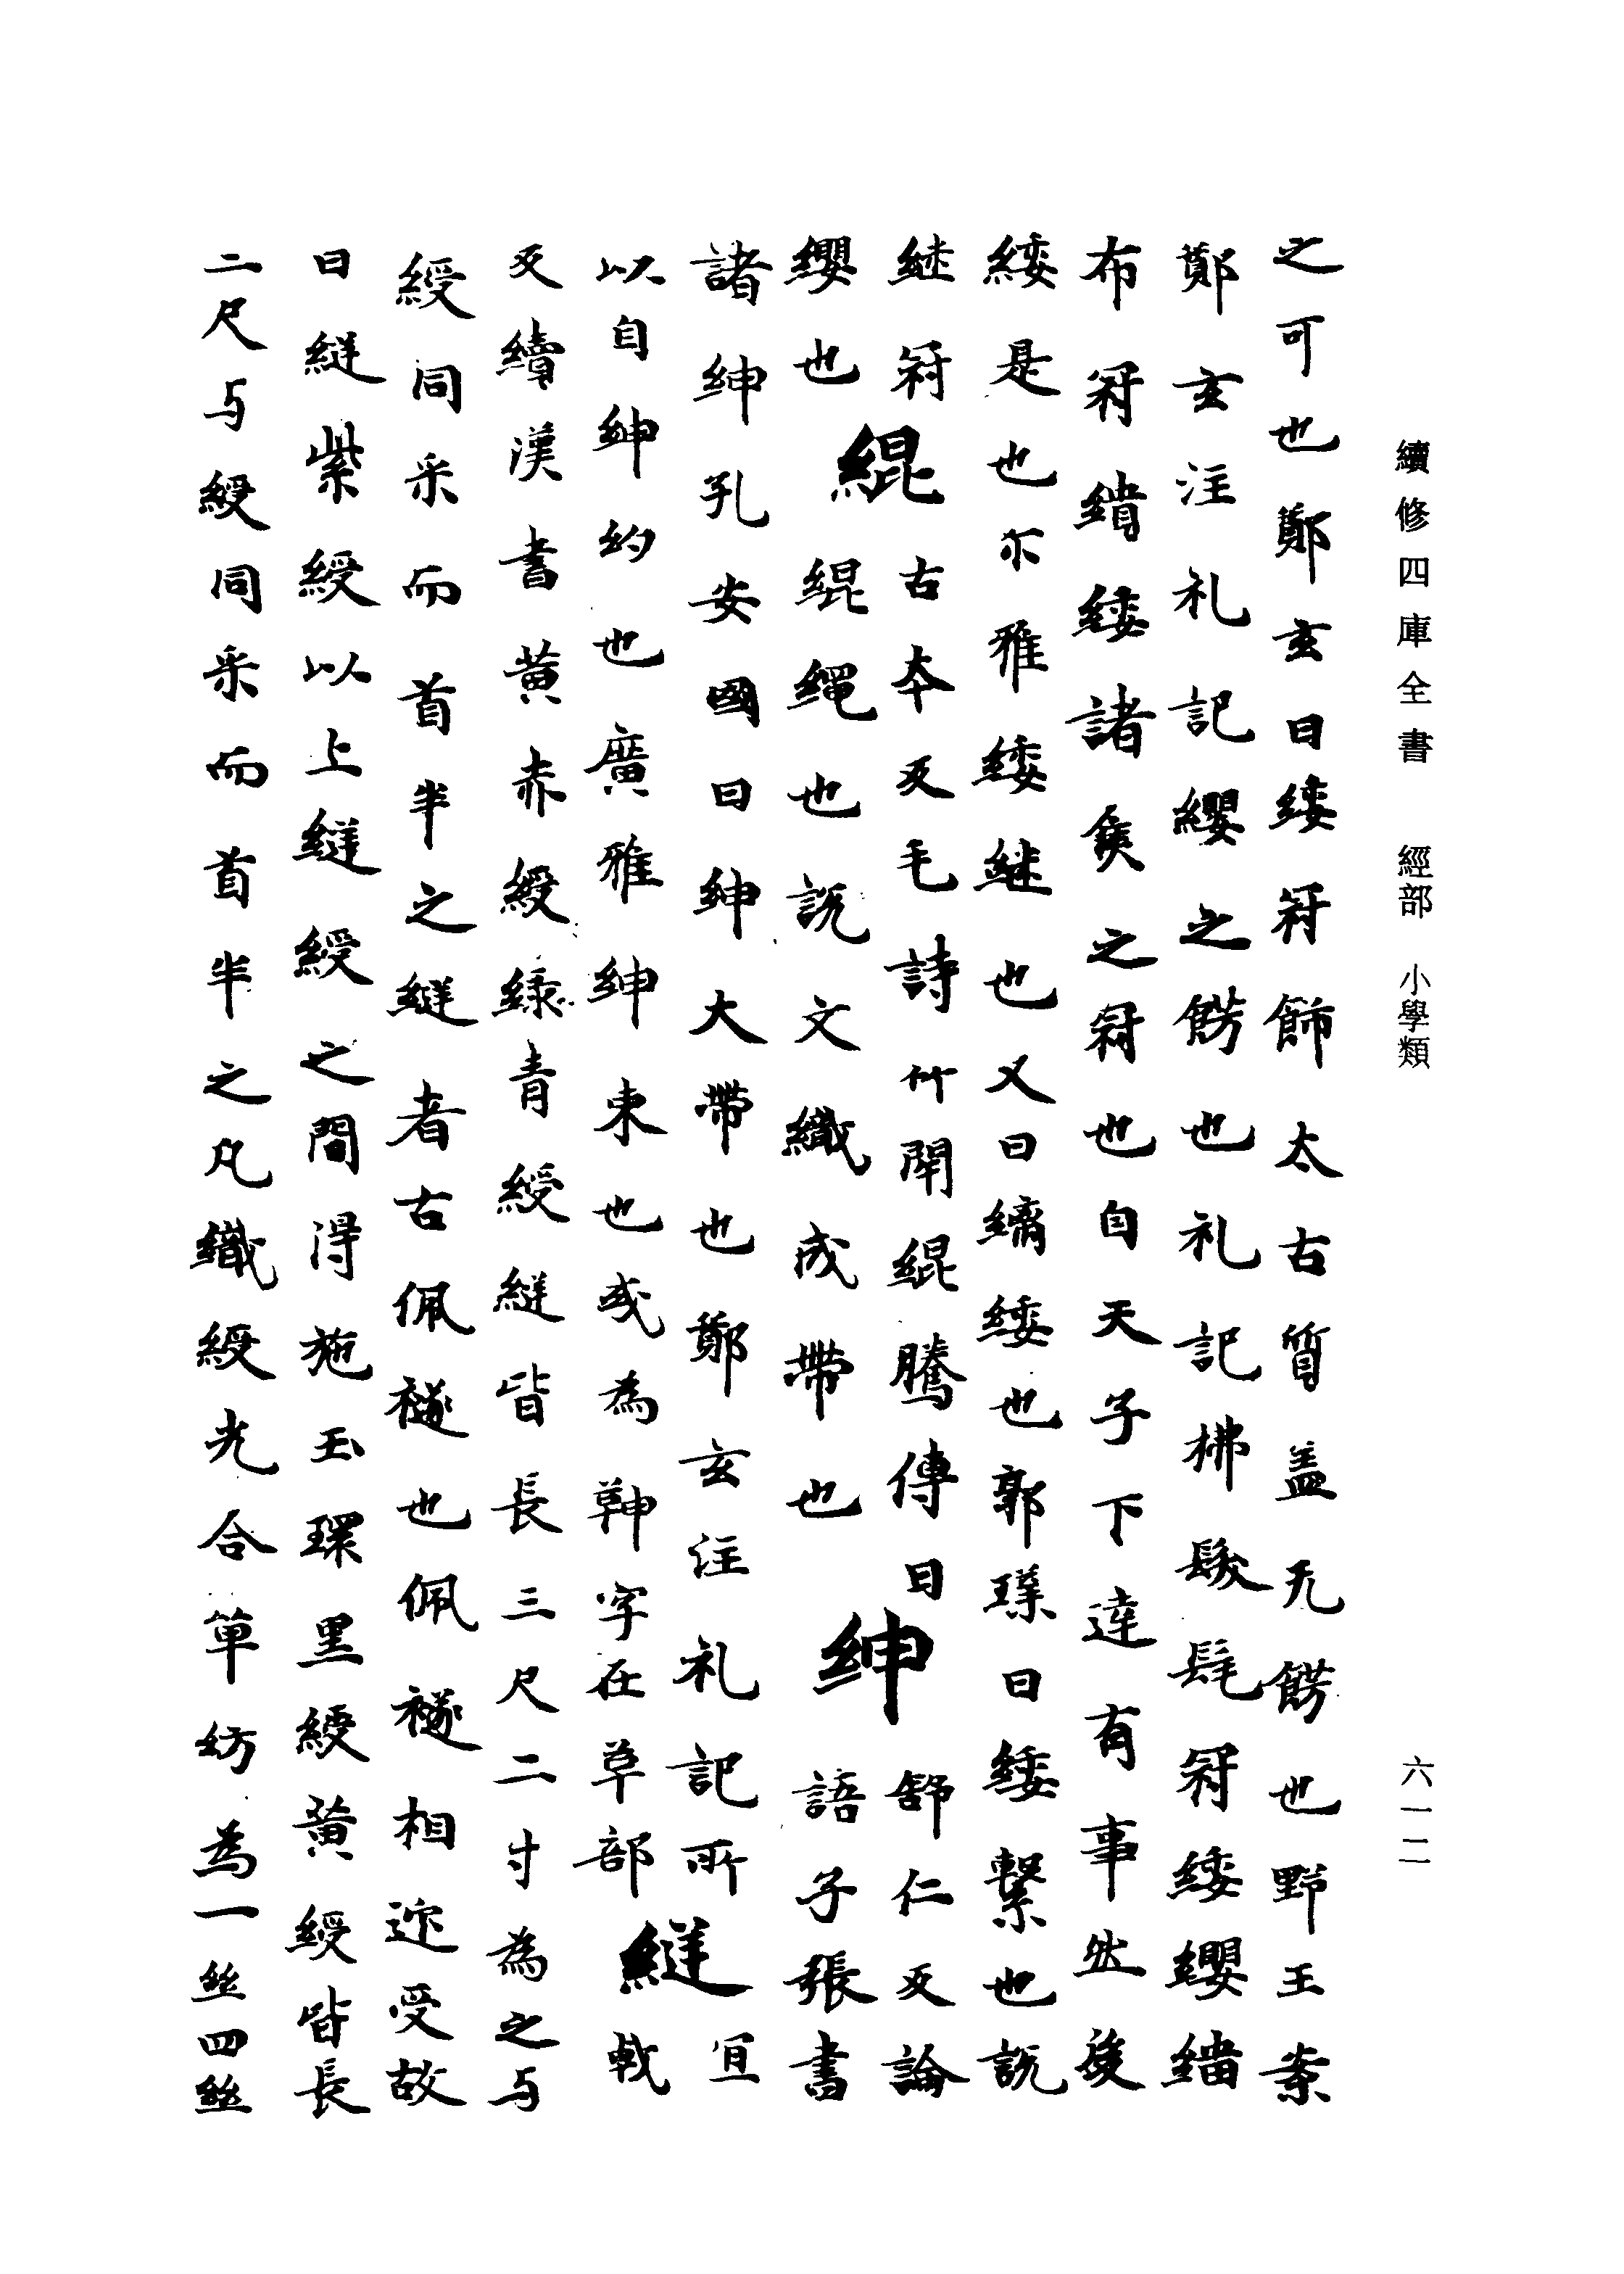 續修四庫全書 經部 小學類 六一二
之可也鄭玄曰緌冠飾太古質盖无餝也野王案
鄭玄注礼記纓之餝也礼記拂髮髦冠緌纓緇
布冠繢緌諸侯之冠也自天子下達有事然後
緌是也尒雅緌継也又曰纗緌也郭璞曰緌繫也說
継冠
纓也
緄
古本反毛詩竹閇緄騰傳曰
緄繩也說文織成帶也
紳
舒仁反論
語子張書
諸紳孔安國曰紳大帶也鄭玄注礼記所
以自紳約也廣雅紳束也或為䩼字在草部
縌
宜
戟
反續漢書黃赤綬緑青綬縌皆長三尺二寸為之与
綬同采而首半之縌者古佩襚也佩襚相迎受故
曰縌紫綬以上縌綬之間得施玉環黒綬黃綬皆長
二尺与綬同采而首半之凡織綬先合單紡為一絲四絲